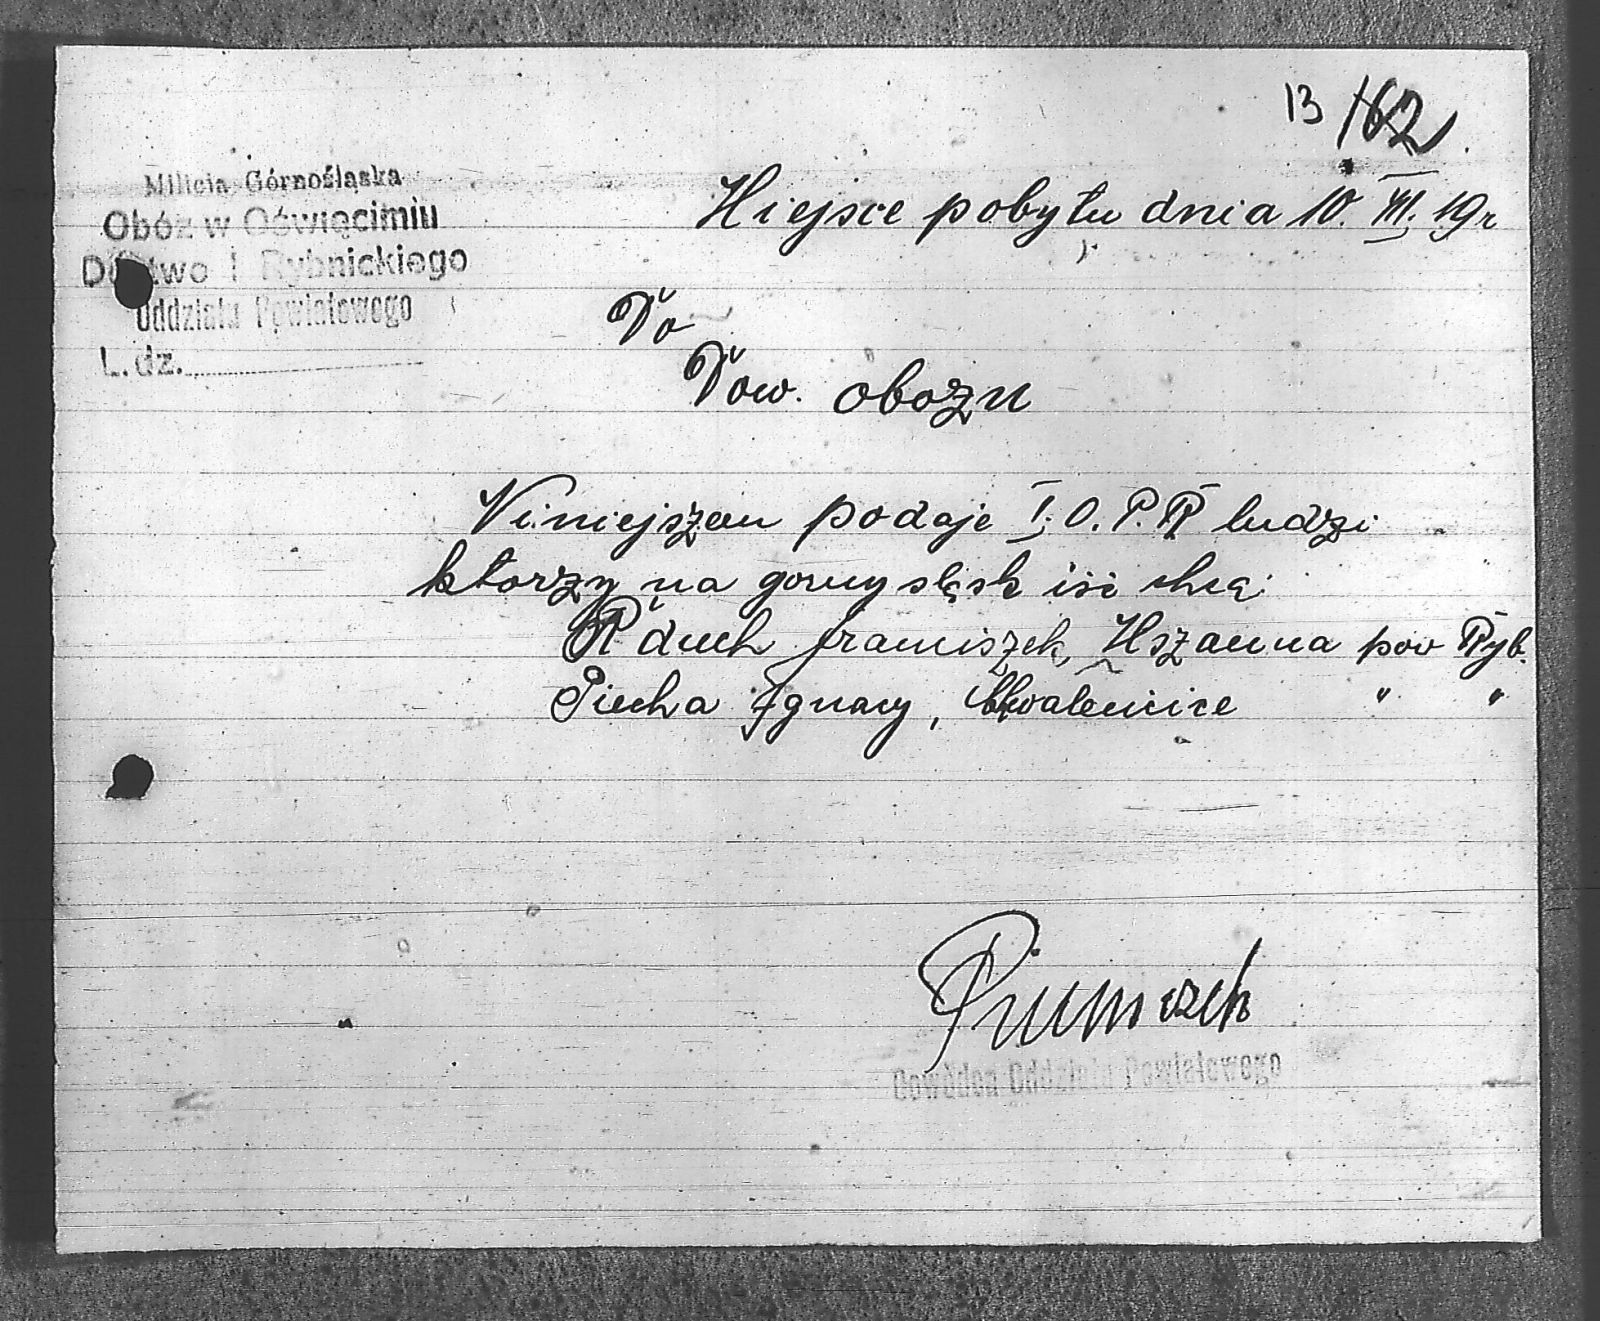 13/162
Milicja Górnośląska
Obóz w Oświęcimiu
D two I Rybnickiego
Oddziału Powiatowego
L. dz.
Miejsce pobytu dnia 10. VIII. 19 r
Do
Dow. obozu
Niniejszem podaje I. O. P. R ludzi
ktorzy na gorny slęsk isi chcą
Franciszek, Mszanna pow Ryb.
Piecha Ignacy, " "
Dowódca Oddziału Powiatowego